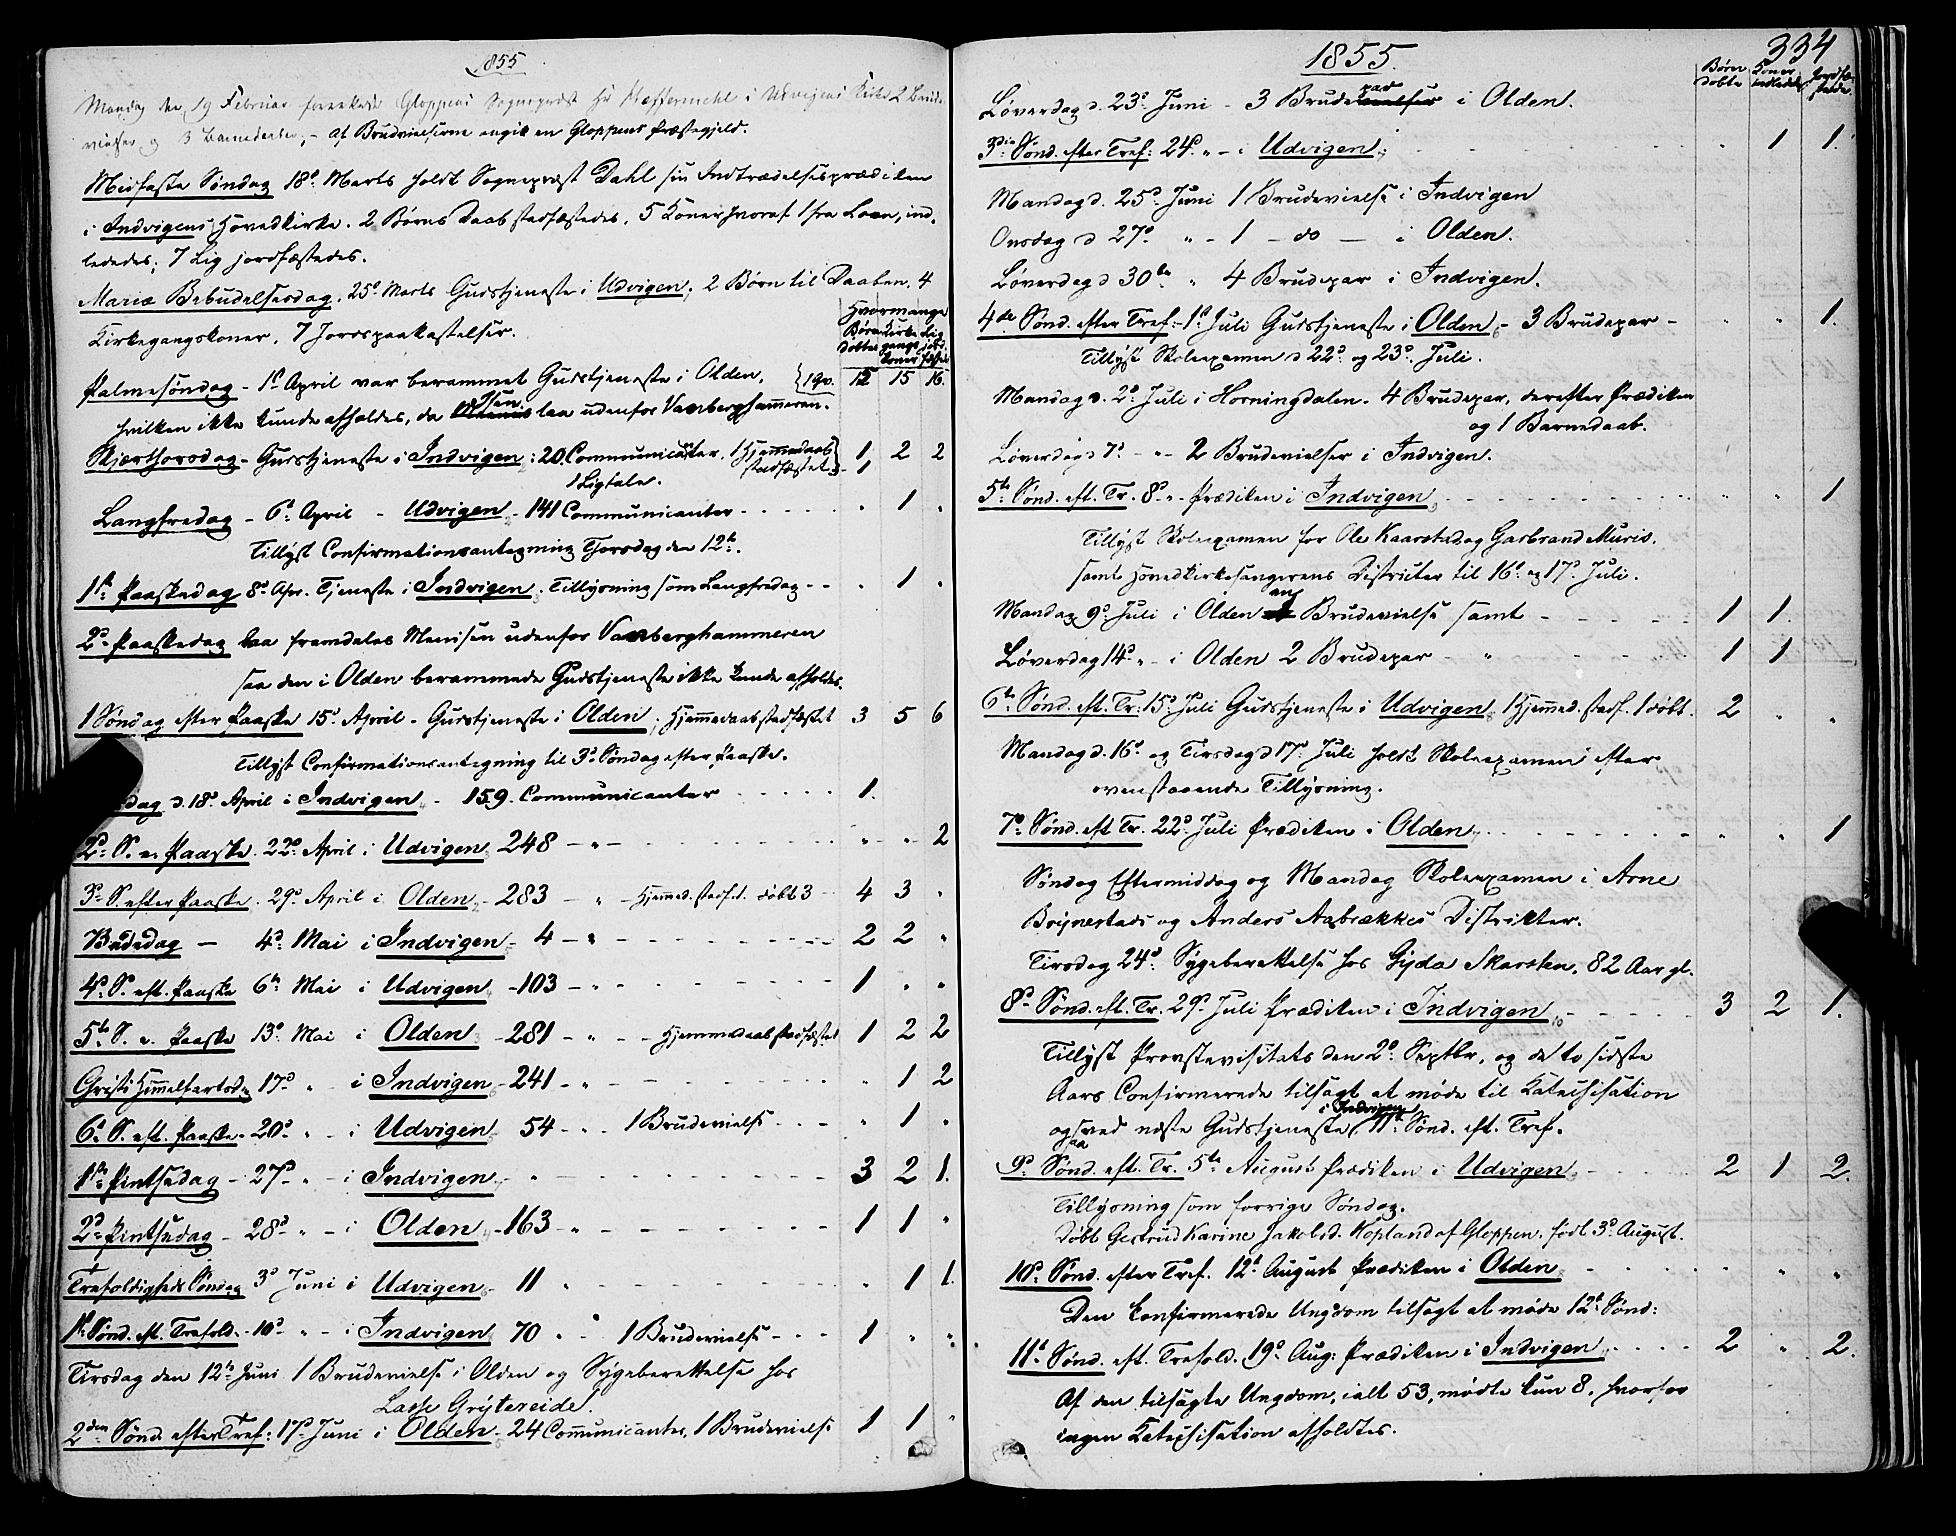 1855
Mandag den 19 Februar forrettede Gloppens Sognepræst Hr Neßermehl i Udvigens Kirke 2 Brude
vielser og 3 Barnedaabe, - af Brudvielserne angik en Gloppens Præstegjeld.
Midfaste Søndag 18d Marts holdt Sognepræst Dahl sin Indtrædelsesprædiken
i Indvigens Hovedkirke. 2 Børns Daab stadfæstedes, 5 Koner hvoraf 1 fra Loen, ind-
lededes; 7 Lig jordfæstedes.
Mariæ Bebudelsesdag. 25d Marts Gudstjeneste i Udvigen; 2 Børn til Daaben. 4
Kirkegangskoner, 7 Jordspaakastelser.
Hvormange
Børn Kirke Lig
døbte gangs jord-
koner
Palmesøndag - 1d April var berammet Gudstjeneste i Olden, 15 15 16
hvilken ikke kunde afholdes, da Isen laa udenfor Vaarberghammeren.
Skjærthorsdag - Gudstjeneste i Indvigen: 20 Communicanter. 1 Hjemmedaab 1 2 2
stadfæstet 1
1 Ligtale.
Langfredag - 6d April - Udvigen - 141 Communicanter - " 1 "
Tillyst Confirmationsantegning Torsdag den 12te.
1ste Paaskedag 8d Apr. Tjeneste i Indvigen. Tillysning som Langfredag - " 1 "
2d Paaskedag laa fremdeles Menisen udenfor Vaarberghammeren
saa den i Olden berammede Gudstjeneste ikke kunde afholdes.
1 Søndag efter Paaske 15d April - Gudstjeneste i Olden; Hjemmedaab stadfæstet 3 5 6
Tillyst Confirmationsantegning til 3d Søndag efter Paaske.
dag d. 18d April i Indvigen - 159 Communicanter 1.
2d S. e. Paaske. 22d April i Udvigen 248 - " - " " 2
3d S. efter Paaske. 29d April i Olden - 283 - " - Hjemmed. stadf. 1. døbt 3 4 3 "
Bededag - 4d Mai i Indvigen - 4 - " - 2 2 "
4d S. eft. Paaske 6te Mai i Udvigen - 103 - " - 1 " "
5te S. e. Paaske 13d Mai i Olden - 281 - " - Hjemmedaab stadfæstet 1 2 2
Christi Himmelfartsd. 17d " - i Indvigen - 241 - " - " 1 2
6d S. eft. Paaske. - 20d " - i Udvigen 54 - " 1 Brudevielse - " 1 "
1ste Pintsedag - 27d " - i Indvigen - " - 3 2 1.
2d Pintsedag - 28d " - i Olden - 163 - " - 1 1 "
Trefoldigheds Søndag 3d Juni i Udvigen - 11 " - " 1 1.
1ste Sønd. eft. Trefold. - 10d " - i Indvigen 70 " 1 Brudevielse - 1 " "
Tirsdag den 12te Juni 1 Brudevielse i Olden og Sygeberettelse hos
Lasse Grytereide.
2den Sønd. efter Tref: 17d Juni i Olden - 24 Communicanter, 1 Brudevielse 1 1 "
1855.
334
Børn Koner Jordfæ-
døbte indledede stede
Løverdag d. 23d Juni - 3 Brudepar i Olden.
3die Sønd. efter Tref: 24d " - i Udvigen " 1 1.
Mandag d. 25d Juni 1 Brudevielse i Indvigen
Onsdag d 27d " - 1 - do - i Olden.
Løverdag d 30te " 4 Brudepar i Indvigen.
4de Sønd. efter Tref: - 1d Juli Gudstjeneste i Olden - 3 Brudepar - " " 1.
Tillyst Skoleexamen d 22d og 23d Juli.
Mandag d. 2d Juli i Horningdalen. 4 Brudepar, derefter Prædiken
og 1 Barnedaab.
Løverdag d 7d - " - 2 Brudevielser i Indvigen.
5te Sønd. eft. Tr. 8d " - Prædiken i Indvigen " " 1
Tillyst Skoleexamen for Ole Kaarstad og Garbrand Muris.
samt Hovedkirkesangerens Districter til 16d og 17d Juli.
Mandag 9d Juli i Olden en Brudevielse samt - 1 1.
Løverdag 14d " - i Olden 2 Brudepar - " - 1 1
6te Sønd. eft. Tr: 15d Juli Gudstjeneste i Udvigen 1 Hjemmed. stadf. 1 døbt. 2 " "
Mandag d. 16d og Tirsdag d 17d Juli holdt Skoleexamen efter
ovenstaaende Tillysning.
7d Sønd. eft Tr. 22d Juli Prædiken i Olden " " 1
Søndag Eftermiddag og Mandag Skoleexamen i Arne
Bojnestads og Anders Aabrækkes Distrikter.
Tirsdag 24d Sygeberettelse hos Gjyda Skarsten, 82 Aar gl.
8d Sønd. eft. Tr. 29d Juli Prædiken i Indvigen 3 2 1.
Tillyst Provstevisitats den 2d Septbr. og de to sidste
Aars Confirmerede tilsagt at møde til Katechisation
i Indvigen
ogsaa ved næste Gudstjeneste, 11te Sønd. eft. Tref.
9d Sønd. eft. Tr. 5te August Prædiken i Udvigen 2 1 2.
Tillysning som forrige Søndag.
Døbt Gertrud Karine Jakobsd. Kopland af Gloppen, født 3d August.
10d Sønd. efter Tref. 12te August Prædiken i Olden " " "
Den konfirmerede Ungdom tilsagt at møde 12te Sønd:
11te Sønd. eft. Trefold. 19d Aug: Prædiken i Indvigen 2 " 2.
Af den tilsagte Ungdom, ialt 53, mødte kun 8, hvorfor
ingen Katechisation afholdtes.